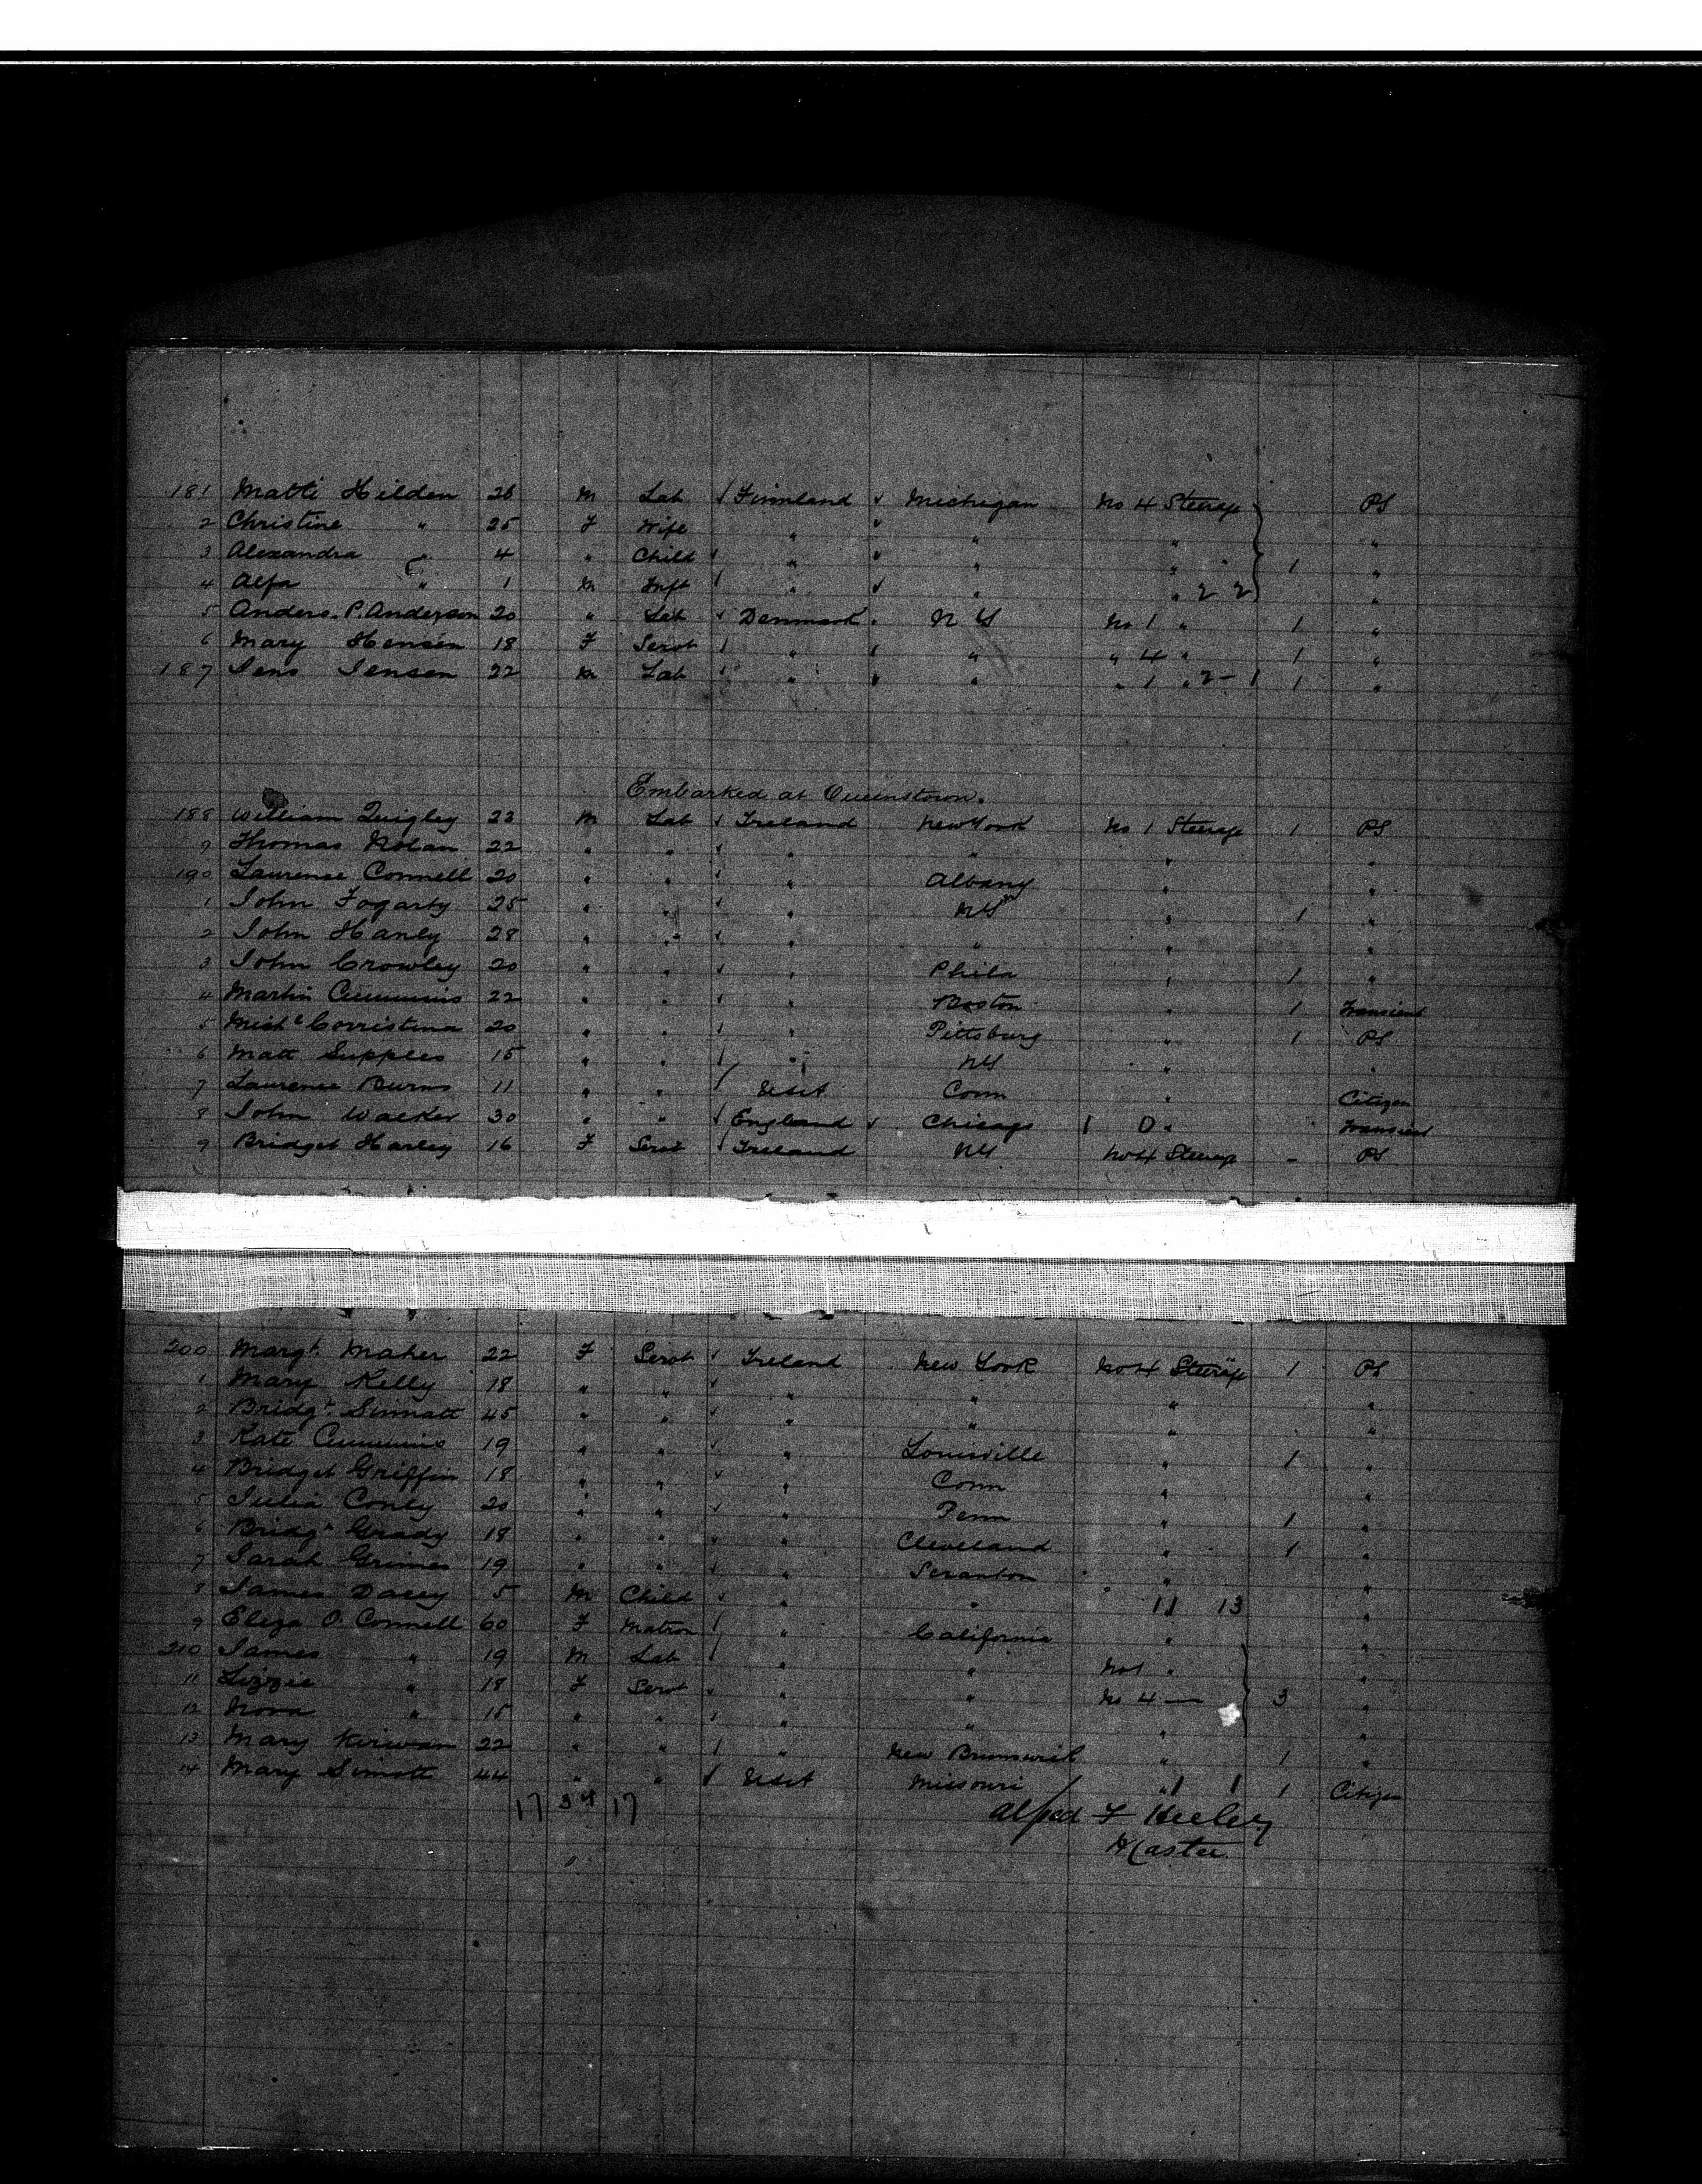 181 Matti Hilden 26 M Lab Finnland Michigan No 4 Steerage PS
2 Christine " 25 F Wife " " " "
3 Alexandra " 4 " Child " " " 1 "
4 Alfa " 1 M Inft " " " 2 2 "
5 Anders. P. Anderson 20 " Lab Denmark N Y No 1 " 1 "
6 Mary Hensen 18 F Servt " " " 4 " 1 "
187 Jens Jensen 22 M Lab " " " 1 " 2-1 1 "
Embarked at Queenstown.
188 William Quigley 23 M Lab Ireland New York No 1 Steerage 1 PS
9 Thomas Nolan 22 " " " " " "
190 Laurence Connell 20 " " " Albany " "
1 John Fogarty 25 " " " NY " 1 "
2 John Hanly 28 " " " " " "
3 John Crowley 20 " " " Phila " 1 "
4 Martin Cummins 22 " " " Boston " 1 Transient
5 Michl Corristina 20 " " " Pittsburg " 1 PS
6 Matt Supples 15 " " " NY " "
7 Laurence Burns 11 " " USA Conn " Citizen
8 John Walker 30 " " England Chicago 1 D " Transient
9 Bridget Harley 16 F Servt Ireland NY No 4 Steerage - PS
200 Margt. Maher 22 F Servt Ireland New York No 4 Steerage 1 PS
1 Mary Kelly 18 " " " " " "
2 Bridgt. Sinnatt 45 " " " " " "
3 Kate Cummins 19 " " " Louisville " 1 "
4 Bridget Griffin 18 " " " Conn " "
5 Julia Conly 20 " " " Penn " 1 "
6 Bridgt. Grady 18 " " " Cleveland " 1 "
7 Sarah Grimes 19 " " " Scranton " "
8 James Dacey 5 M Child " " 11 13 "
9 Eliza O. Connell 60 F Matron " California " "
210 James " 19 M Lab " " No 1 " "
11 Lizzie " 18 F Servt " " No 4 — 3 "
12 Nora " 15 " " " " " "
13 Mary Kirwan 22 " " " New Brunswick " 1 "
14 Mary Sinott 44 " " USA Missouri " 1 1 1 Citizen
17 34 17
Alfred F Heeley
Master